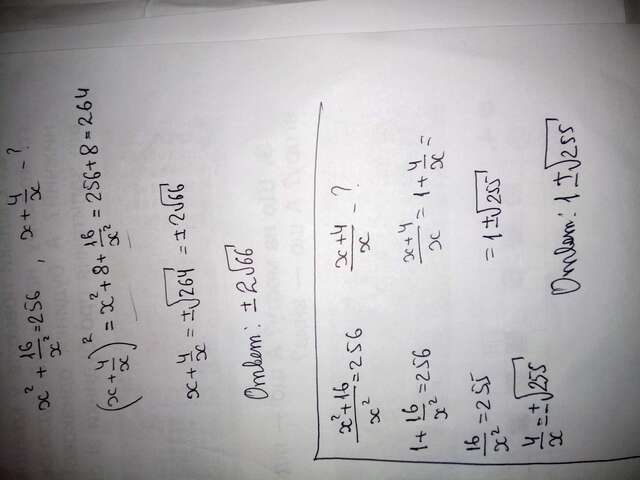 x² + 16/x² = 256 , x + 4/x - ?
(x + 4/x)² = x² + 8 + 16/x² = 256 + 8 = 264
x + 4/x = ±√264 = ±2√66
Ответ: ±2√66
(x² + 16)/x² = 256 (x + 4)/x - ?
1 + 16/x² = 256 (x + 4)/x = 1 + 4/x =
16/x² = 255 = 1 ± √255
4/x = ±√255
Ответ: 1 ± √255